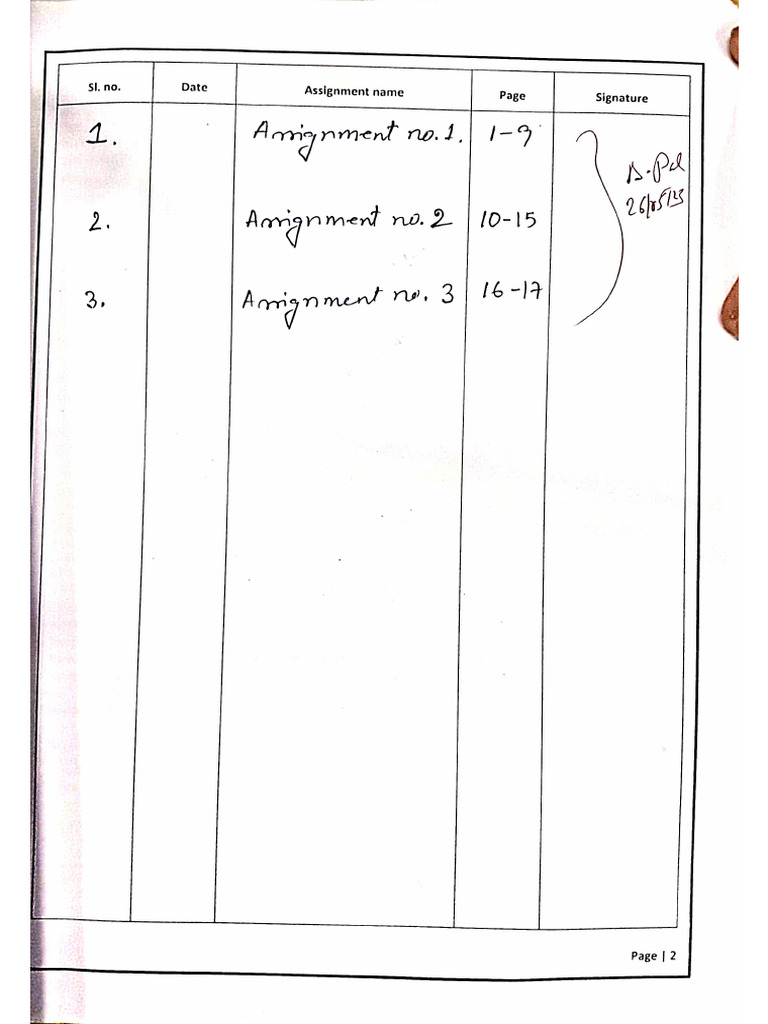 Sl. no. Date Assignment name Page Signature
1. Assignment no. 1. 1-9
D. Pal
26/05/23
2. Assignment no. 2 10-15
3. Assignment no. 3 16-17
Page | 2